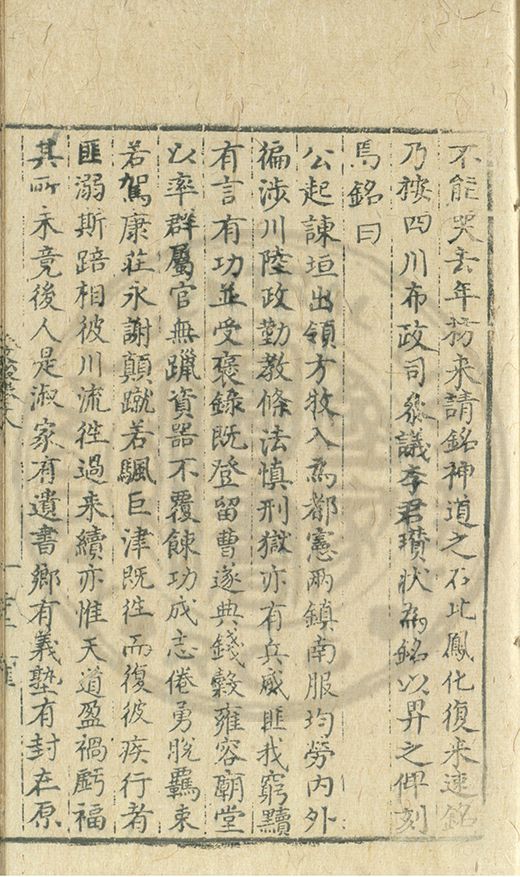 不能哭去年務来請銘神道之石比鳳化復来速銘
乃按四川布政司叅議李君瓚状為銘以畀之俾刻
焉銘曰
公起諫垣出領方牧入為都憲兩鎮南服均勞内外
徧涉川陸政勤教條法慎刑獄亦有兵威匪我窮黷
有言有功並受褒錄既登留曹遂典錢榖雍容廟堂
以率群屬官無躐資器不覆餗功成志倦勇脫羈束
若駕康莊永謝顛蹴若颿巨津既徃而復彼疾行者
匪溺斯踣相彼川流徃過来續亦惟天道盈禍虧福
其所未竟後人是淑家有遺書鄉有義塾有封在原